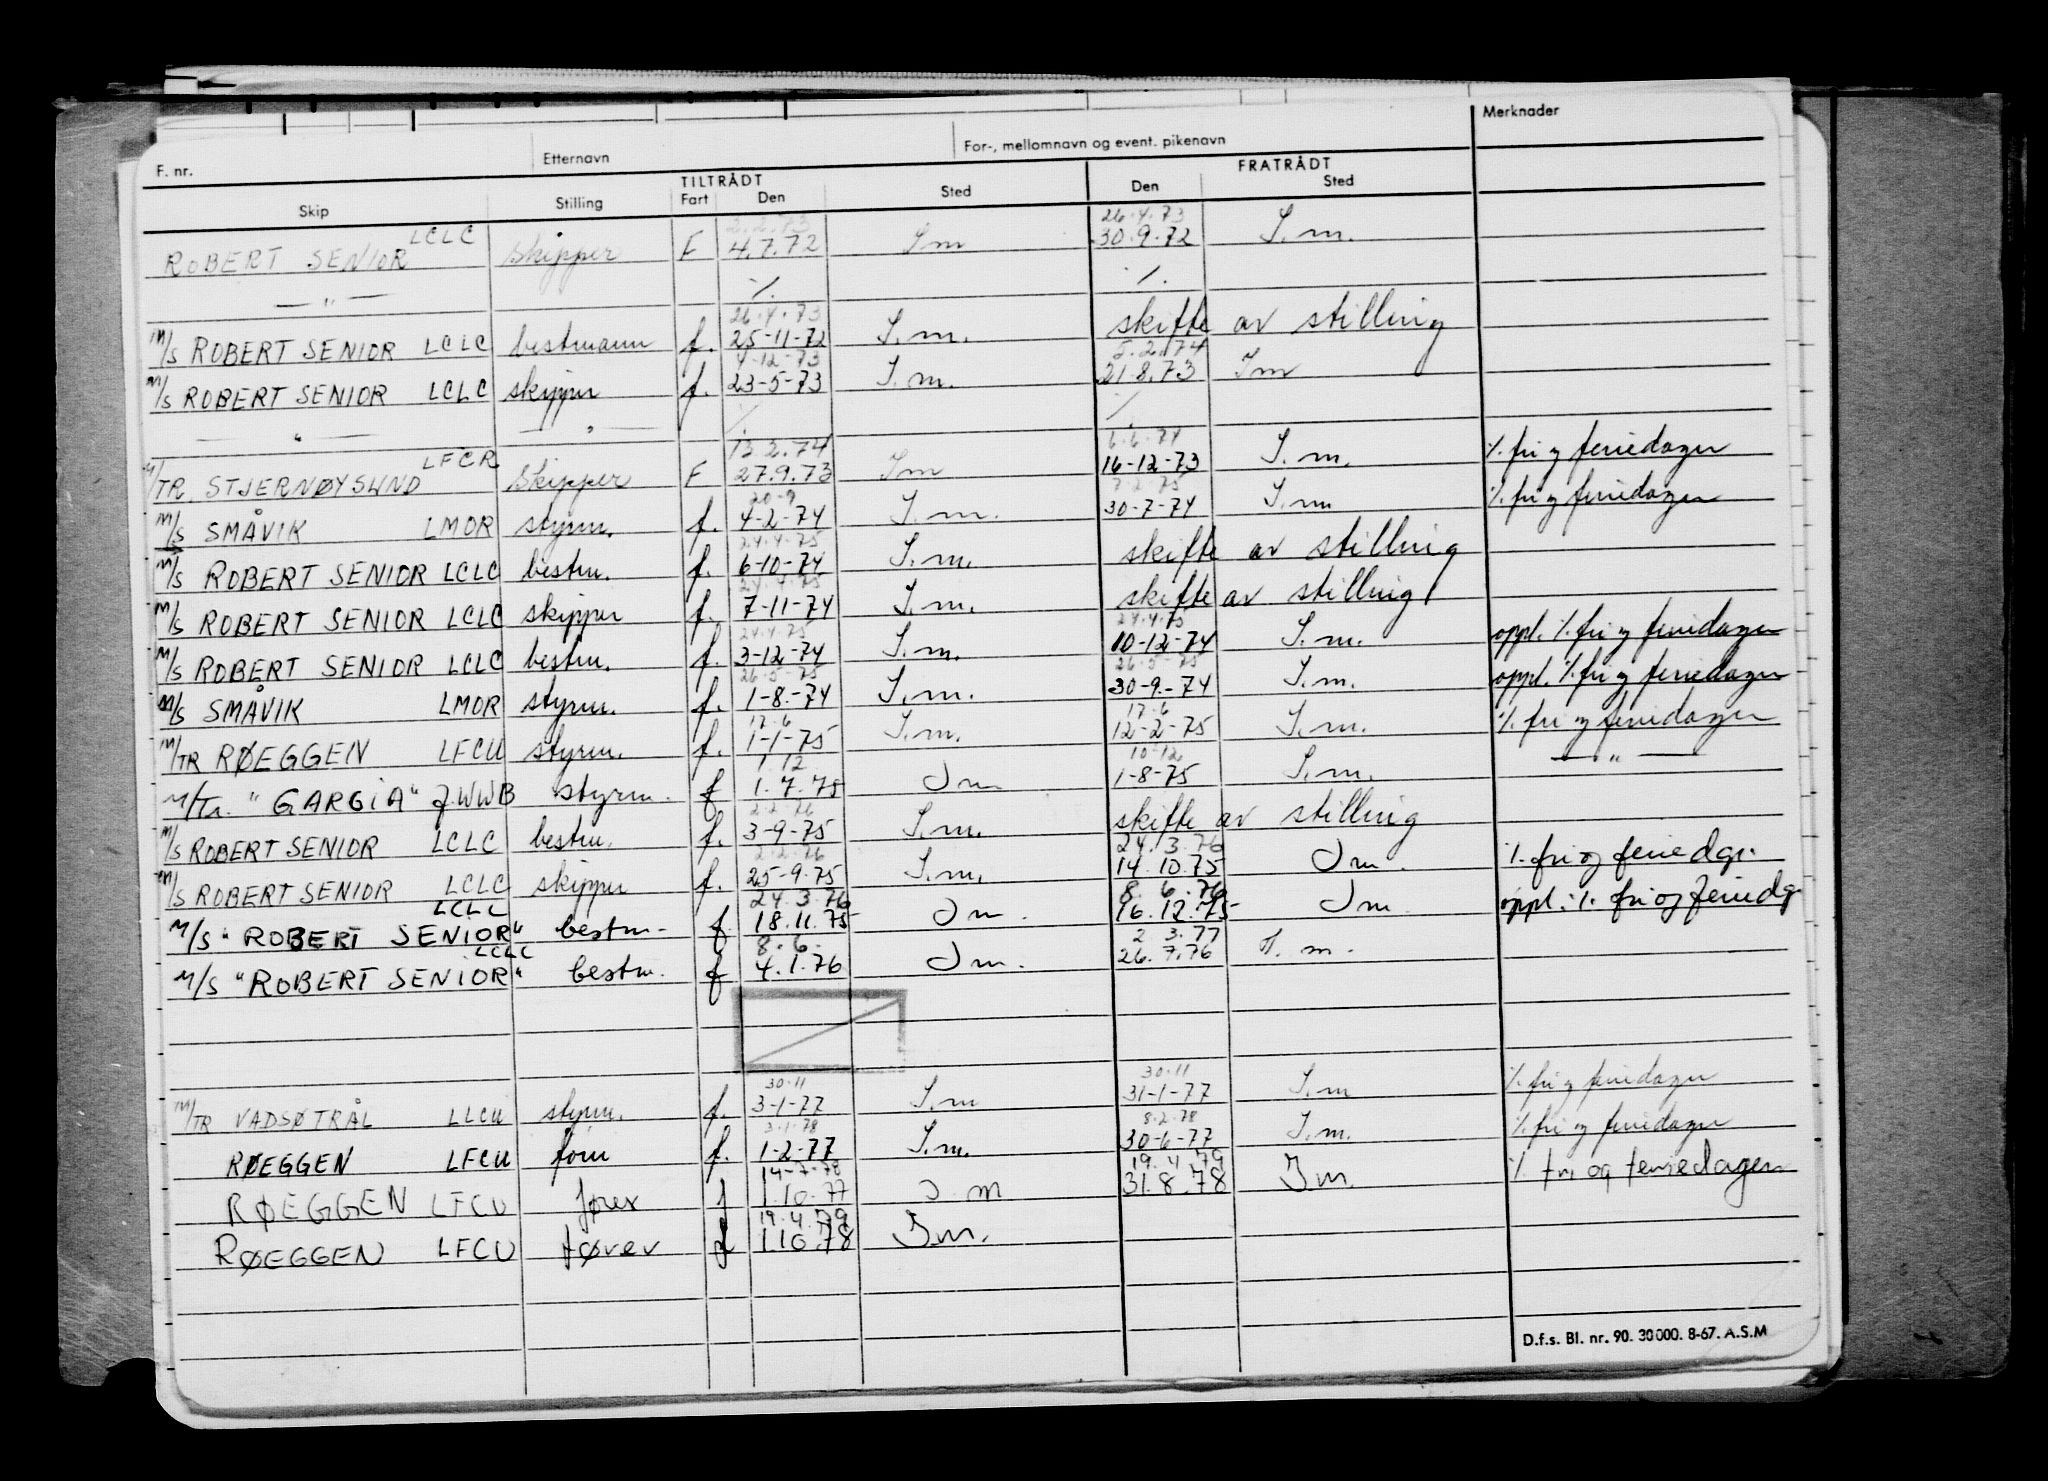 Merknader
F. nr. Etternavn For-, mellomnavn og event. pikenavn
TILTRÅDT FRATRÅDT
Skip Stilling Fart Den Sted Den Sted
2.2.73 26.4.73
ROBERT SENIOR LCLC skipper F 4.7.72 Im 30.9.72 I.m.
— " — /. /.
26.4.73
M/S ROBERT SENIOR LCLC bestmann f. 25-11-72 I.m. skifte av stilling
4-12-73 5.2.74
M/S ROBERT SENIOR LCLC skipper f. 23-5-73 I.m. 21.8.73 Im
— " — — " — /. /.
13.2.74 6.6.74
M/TR. STJERNØYSUND LFCR Skipper F 27.9.73 Im 16-12-73 I.m. % fri og feriedager
20-9 7-2-75
M/S SMÅVIK LMOR styrm. f. 4-2-74 I.m. 30-7-74 I.m % fri og feriedager
24.4.75
M/S ROBERT SENIOR LCLC bestm. f. 6-10-74 I.m. skifte av stilling
24.4.75
M/S ROBERT SENIOR LCLC skipper f. 7-11-74 I.m. skifte av stilling
24.4.75 24.4.75
M/S ROBERT SENIOR LCLC bestm. f. 3-12-74 I.m. 10-12-74 I.m. oppl. % fri og feriedager
26-5-75 26-5-75
M/S SMÅVIK LMOR styrm. f. 1-8-74 I.m. 30-9-74 I.m. oppl. % fri og feriedager
17-6 17-6
M/TR RØEGGEN LFCU styrm. f. 1-1-75 I.m. 12-2-75 I.m. % fri og feriedager
1.12 10-12
M/Tr. "GARGIA" JWWB styrm. f 1.7.75 Im 1-8-75 I.m. — " —
2.2.76
M/S ROBERT SENIOR LCLC bestm. f. 3-9-75 I.m. skifte av stilling
2.2.76 24.3.76
M/S ROBERT SENIOR LCLC skipper f. 25-9-75 I.m. 14.10.75 Im. % fri og feriedgr.
24.3.76 8.6.76
M/S "ROBERT SENIOR" LCLC bestm. f 18.11.75 Im. 16.12.75 Im. oppl. % fri og feriedg.
8.6. 2 3.77
M/S "ROBERT SENIOR" LCLC bestm. f 4.1.76 Im. 26.7.76 I.m.
30-11 30-11
M/TR VADSØTRÅL LLCU styrm. f. 3-1-77 I.m 31-1-77 I.m % fri og feriedager
3-1-78 8-2-78
RØEGGEN LFCU förer f. 1-2-77 I.m. 30-6-77 I.m. % fri og feriedager
14-7-78 19.4.79
RØEGGEN LFCU fører f 1.10.77 I.m 31.8.78 Im. % fri og feriedager
19.4.79
RØEGGEN LFCU fører f 1.10.78 I.m.
D.f.s. Bl. nr. 90. 30000. 8-67. A.S.M